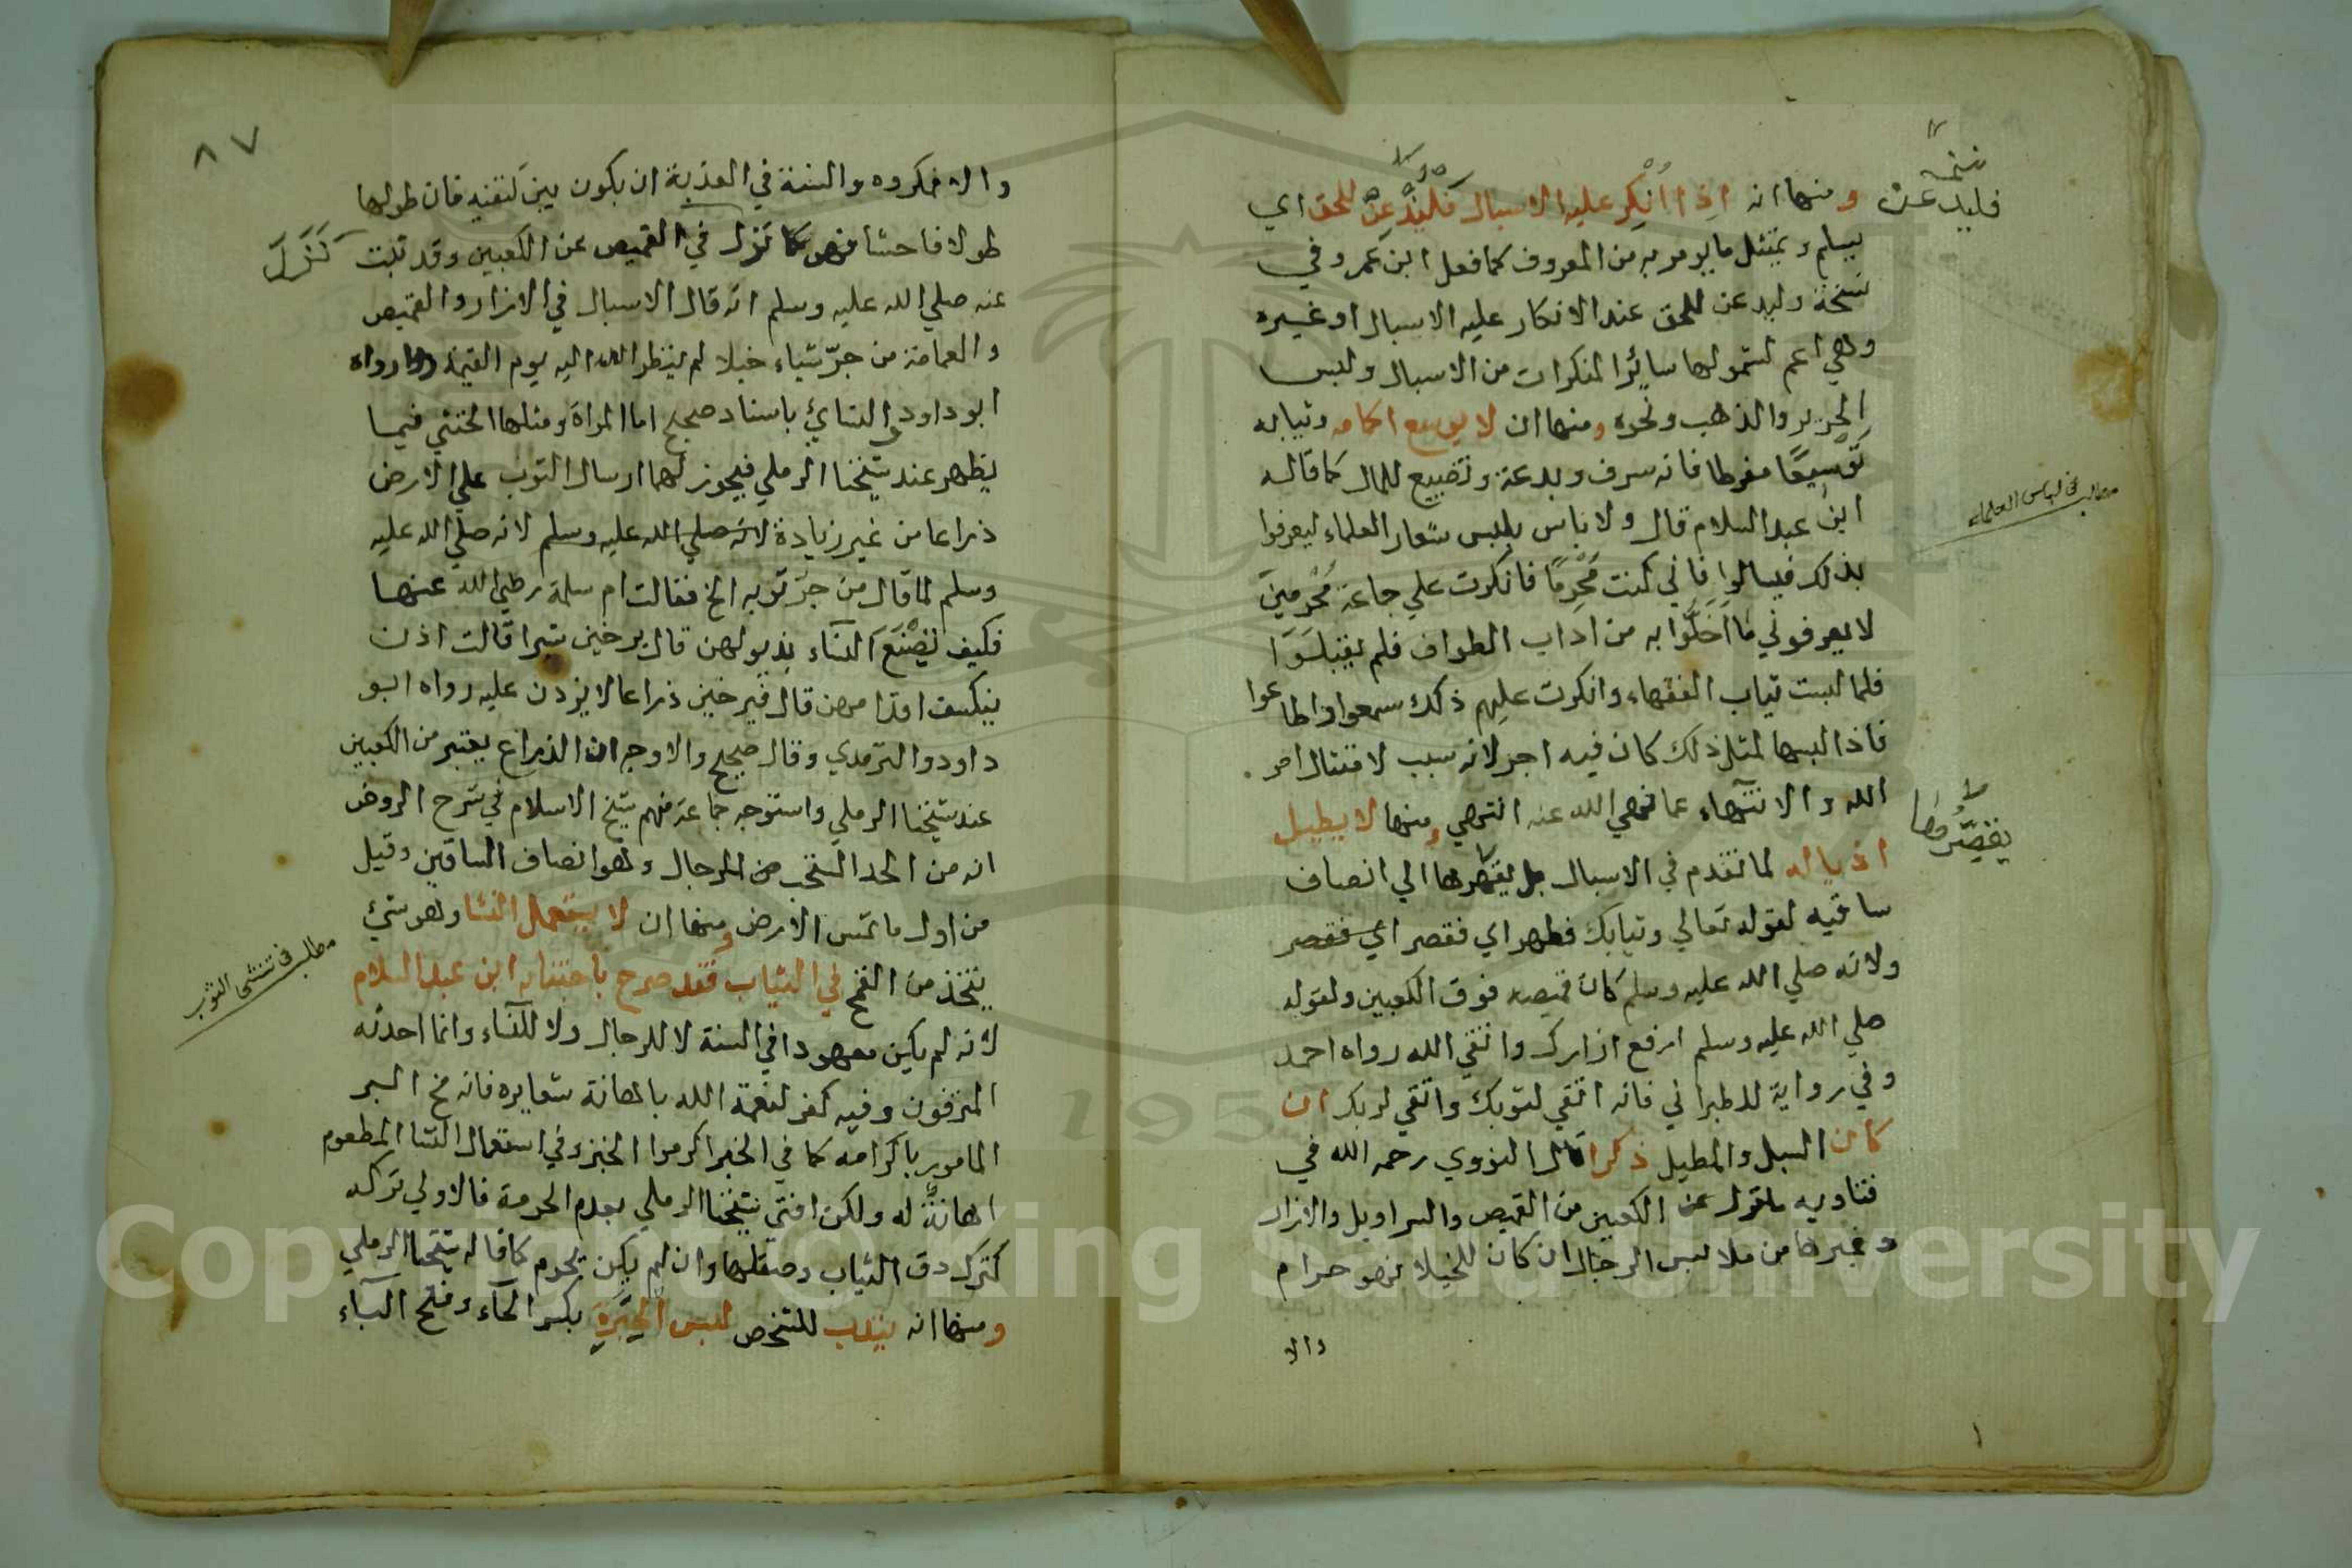 ومنها انه اذا أُنْكِر عليه الاسبال فليذعن للحق اي
يسلم ويمتثل ما يومر به من المعروف كما فعل ابن عمر وفي
نسخة وليدعن للحق عند الانكار عليه الاسبال او غيره
وهي اعم لشمولها سائر المنكرات من الاسبال ولبس
الحرير والذهب ونحوه ومنها ان لا يوسع اكمامه وثيابه
توسيعًا مفرطا فانه سرف وبدعة وتضييع للمال كما قاله
ابن عبد السلام قال ولا باس بلبس شعار العلماء ليعرفوا
بذلك فيسالوا فاني كنت مُحْرِمًا فانكرت علي جماعة مُحْرِمينَ
لا يعرفوني ما اَخَلُّوا به من اداب الطواف فلم يقبلوا
فلما لبست ثياب الفقهاء وانكرت عليهم ذلك سمعوا واطاعوا
فاذا لبسها لمثل ذلك كان فيه اجر لانه سبب لامتثال امر
الله والانتهاء عما نهي الله عنه انتهي ومنها لا يطيل
اذياله لما تقدم في الاسبال بل يقصرها الي انصاف
ساقيه لقوله تعالي وثيابك فطهر اي فقصر اي فقصر
ولانه صلي الله عليه وسلم كان قميصه فوق الكعبين ولقوله
صلي الله عليه وسلم ارفع ازارك واتقي الله رواه احمد
وفي رواية للطبراني فانه اتقي لثوبك واتقي لربك ان
كان المسبل والمطيل ذكرا قال النووي رحمه الله في
فتاويه ما نزل عن الكعبين من القميص والسراويل والازار
وغيرها من ملابس الرجال ان كان للخيلا فهو حرام
والا
نسخة
فليدعن
مطلب في لباس العلماء
يقصرها
٨٧
والا فمكروه والسنة في العذبة ان يكون بين كتفيه فان طولها
طولا فاحشا فهو كما نزل في القميص عن الكعبين وقد ثبت
عنه صلي الله عليه وسلم انه قال الاسبال في الازار والقميص
والعمامة من جرّ شياء خيلا لم ينظر الله اليه يوم القيمة رواه
ابو داود والنسائي باسناد صحيح اما المراة ومثلها الخنثي فيما
يظهر عند شيخنا الرملي فيجوز لهما ارسال الثوب علي الارض
ذراعا من غير زيادة لانه صلي الله عليه وسلم لانه صلي الله عليه
وسلم لما قال من جرّ ثوبه الخ فقالت ام سلمة رضي الله عنها
فكيف تصنع النساء بذيولهن قال يرخين شبرا قالت اذن
ينكشف اقدامهن قال فيرخين ذراعا لا يزدن عليه رواه ابو
داود والترمذي وقال صحيح والاوجه ان الذراع يعتبر من الكعبين
عند شيخنا الرملي واستوجه جماعة منهم شيخ الاسلام في شرح الروض
انه من الحد المستحب من الرجال وهو انصاف الساقين وقيل
من اول ما تمس الارض ومنها ان لا يستعمل النشا وهو شئ
يتخذ من القمح في الثياب فقد صرح باجتنابه ابن عبد السلام
لانه لم يكن معهودا في السنة لا للرجال ولا للنساء وانما احدثه
المترفون وفيه كفر لنعمة الله باهانة شعايره فانه مخ البر
المامور باكرامه كما في الخبر اكرموا الخبز وفي استعمال النشا المطعوم
اهانةٌ له ولكن افتي شيخنا الرملي بعدم الحرمة فالاولي تركه
كترك دق الثياب وصقلها وان لم يكن يحرم كما قاله شيخنا الرملي
ومنها انه يندب للشخص لبس الحِبَرَةِ بكسر الحآء وفتح البآء
كَنَزَلَ
مطلب في تنشي الثوب
Copyright © King Saud University
195